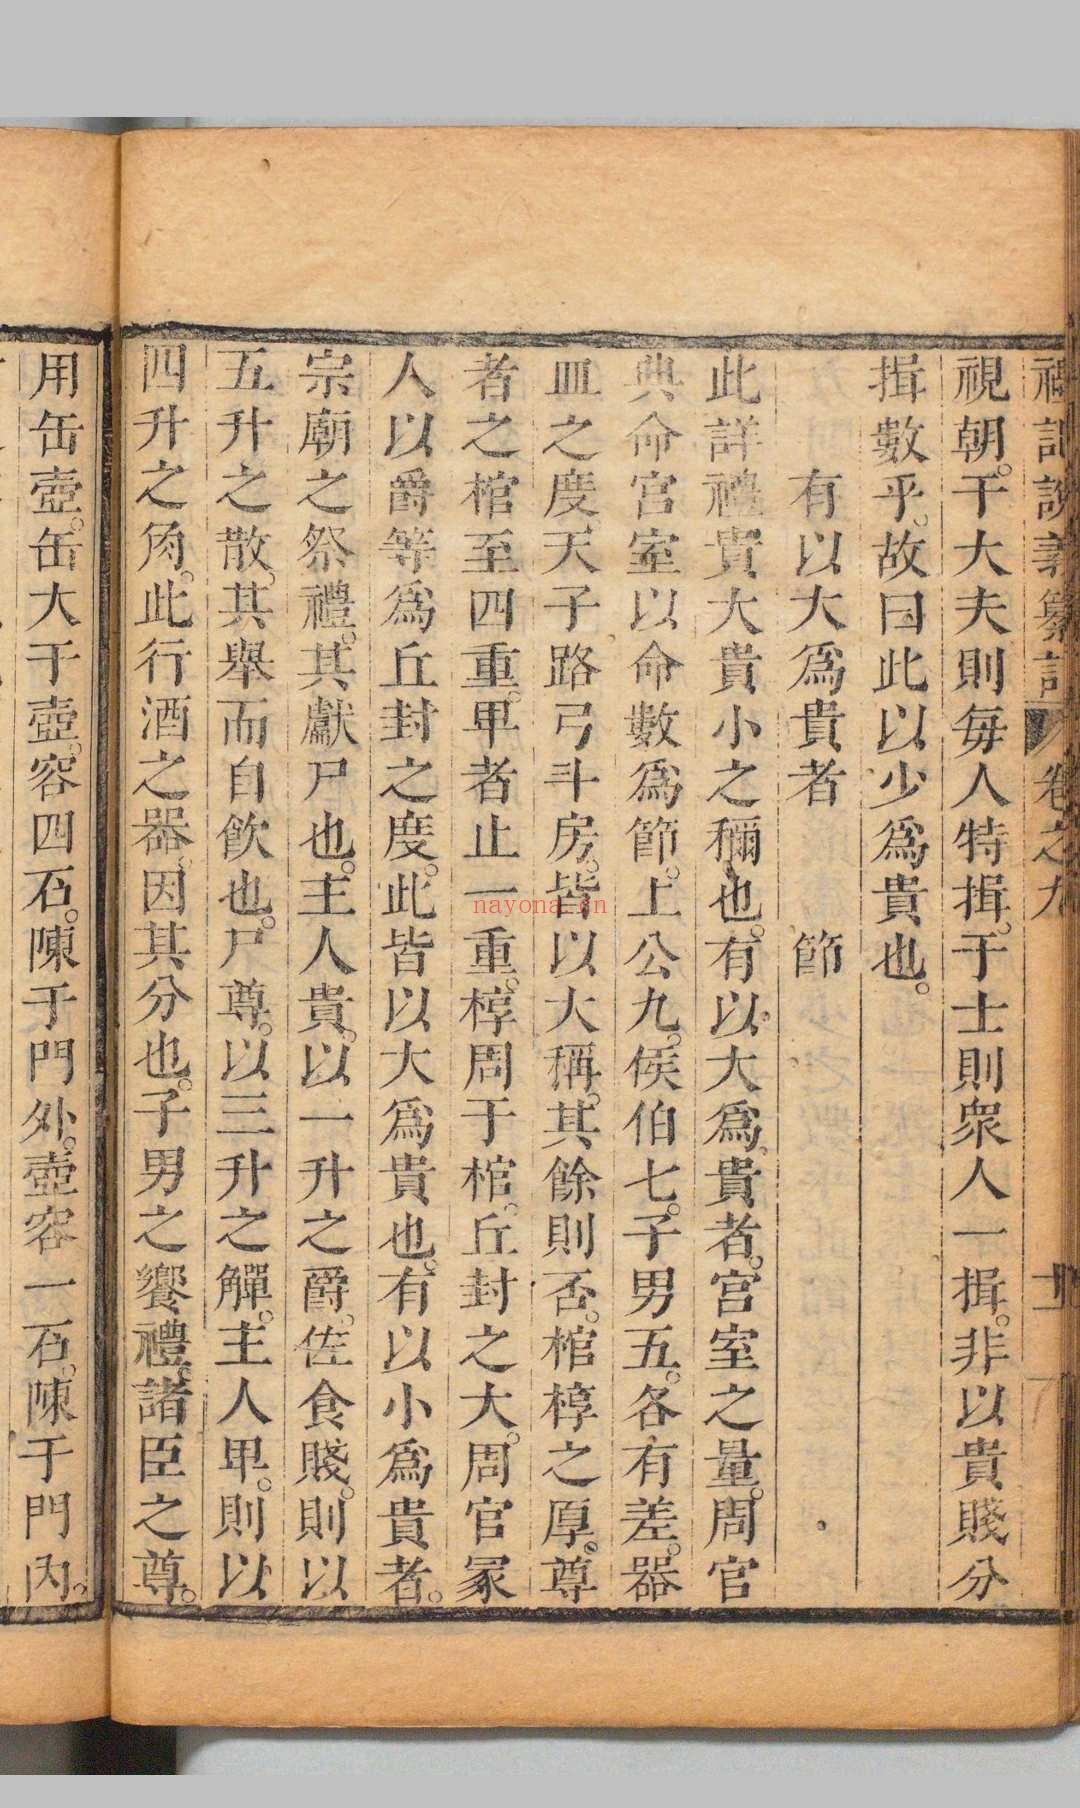 禮記說義纂訂 卷之九 十一
視朝。于大夫則每人特揖。于士則眾人一揖。非以貴賤分
揖數乎。故曰此以少爲貴也。
有以大爲貴者 節
此詳禮貴大貴小之稱也。有以大爲貴者。宮室之量。周官
典命宮室以命數爲節。上公九。侯伯七。子男五。各有差。器
皿之度天子路弓斗房。皆以大稱。其餘則否。棺椁之厚。尊
者之棺至四重。卑者止一重。椁周于棺。丘封之大。周官冢
人以爵等爲丘封之度。此皆以大爲貴也。有以小爲貴者。
宗廟之祭禮。其獻尸也。主人貴。以一升之爵。佐食賤。則以
五升之散。其舉而自飲也。尸尊。以三升之觶。主人卑。則以
四升之角。此行酒之器。因其分也。子男之饗禮。諸臣之尊。
用缶壺。缶大于壺。容四石。陳于門外。壺容一石。陳于門內。
nayona.cn